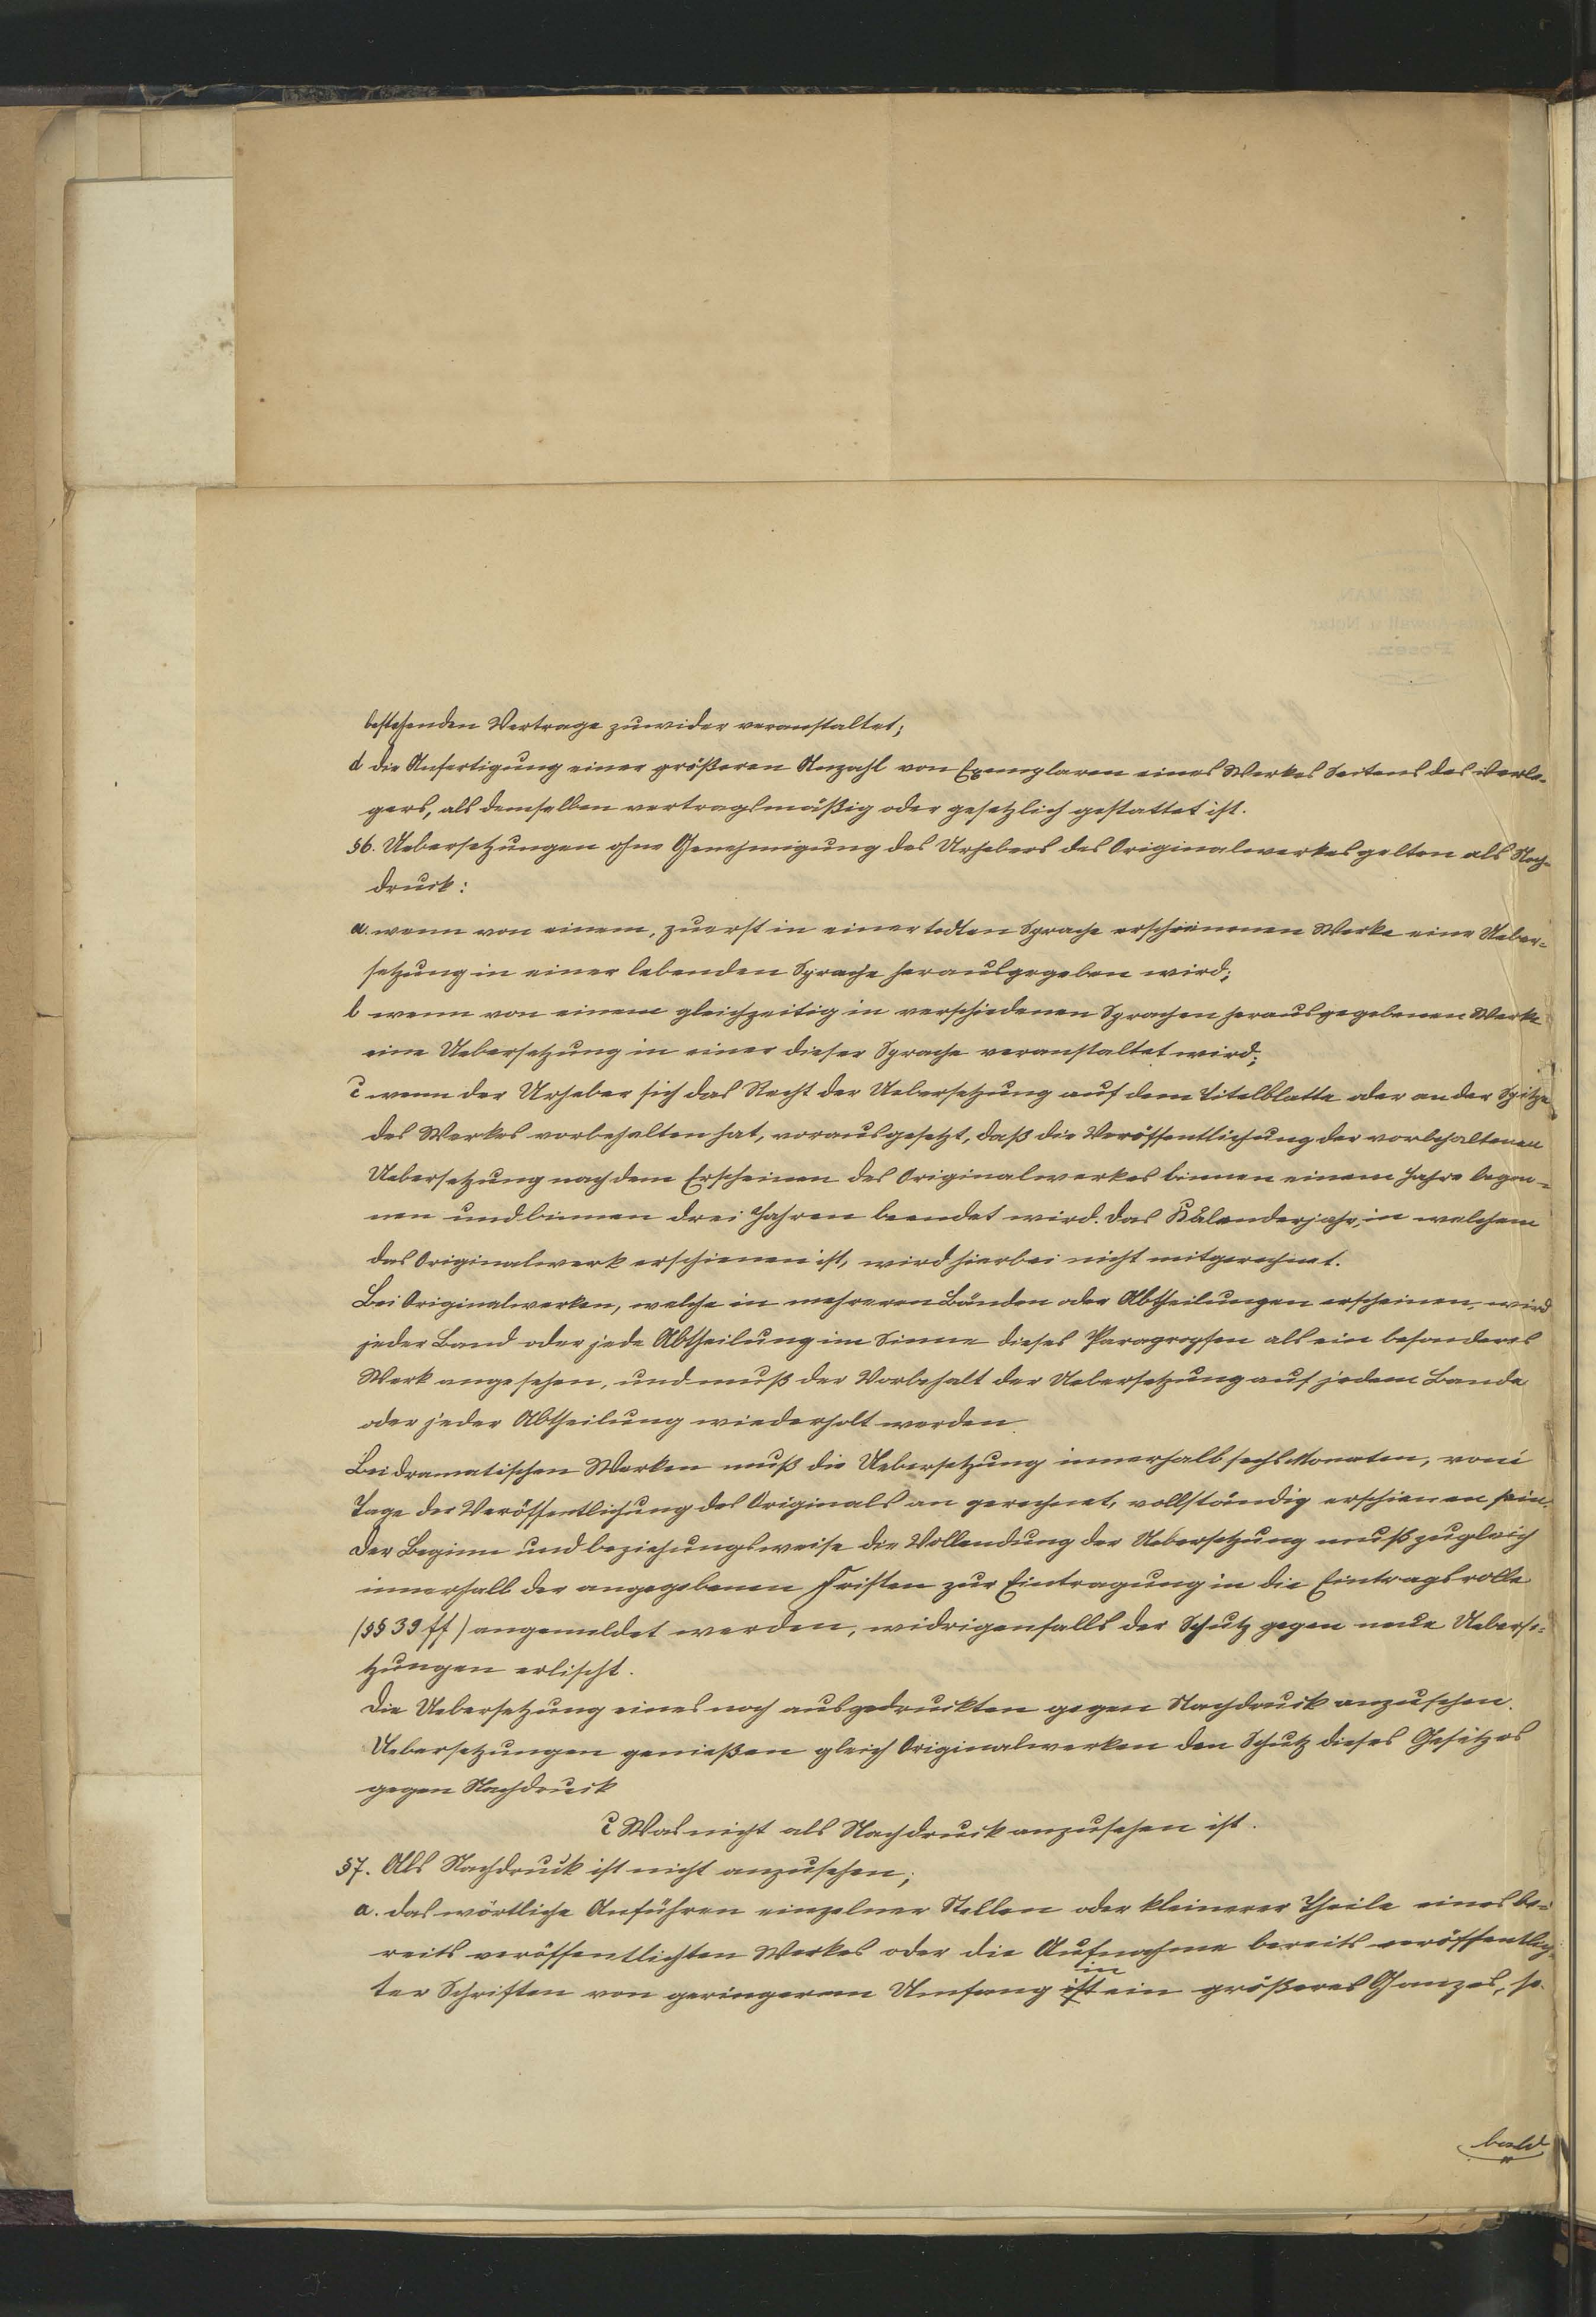 bestehenden Vertrage zuwider veranstaltet;
d die Anfertigung einer größeren Anzahl von Exemplaren eines Werkes Seitens des Verle-
gers, als demselben vertragsmäßig oder gesetzlich gestattet ist.
§6. Uebersetzungen ohne Genehmigung des Urhebers des Originalwerkes gelten als Nach-
druck:
a. wenn von einem, zuerst in einer todten Sprache erschienenen Werke eine Ueber-
setzung in einer lebenden Sprache herausgegeben wird;
b wenn von einem gleichzeitig in verschiedenen Sprachen herausgegebenen Werke
eine Uebersetzung in einer dieser Sprache veranstaltet wird;
c wenn der Urheber sich das Recht der Uebersetzung auf dem Titelblatte oder an der Spitze
des Werkes vorbehalten hat, vorausgesetzt, daß die Veröffentlichung der vorbehaltenen
Uebersetzung nach dem Erscheinen des Originalwerkes binnen einem Jahre begon-
nen und binnen drei Jahren beendet wird. Das Kalenderjahr, in welchem
das Originalwerk erschienen ist, wird hierbei nicht mitgerechnet.
Bei Originalwerken, welche in mehreren Bänden oder Abtheilungen erscheinen, wird
jeder Band oder jede Abtheilung im Sinne dieses Paragraphen als ein besonderes
Werk angesehen, und muß der Vorbehalt der Uebersetzung auf jedem Bande
oder jeder Abtheilung wiederholt werden.
Bei dramatischen Werken muß die Uebersetzung innerhalb sechs Monaten, vom
Tage der Veröffentlichung des Originals an gerechnet, vollständig erschienen sein.
Der Beginn und beziehungsweise die Vollendung der Uebersetzung muß zugleich
innerhalb der angegebenen Fristen zur Eintragung in die Eintragsrolle
(§§ 39 ff) angemeldet werden, widrigenfalls der Schutz gegen neue Ueberse-
tzungen erlischt.
Die Uebersetzung eines noch ausgedruckten gegen Nachdruck anzusehen.
Uebersetzungen genießen gleich Originalwerken den Schutz dieses Gesetzes
gegen Nachdruck
c Was nicht als Nachdruck anzusehen ist.
§7. Als Nachdruck ist nicht anzusehen;
a. das wörtliche Anführen einzelner Stellen oder kleinerer Theile eines be-
reits veröffentlichten Werkes oder die Aufnahme bereits veröffentlich-
in
ter Schriften von geringerem Umfang ist ein größeres Ganzes, so-
bald